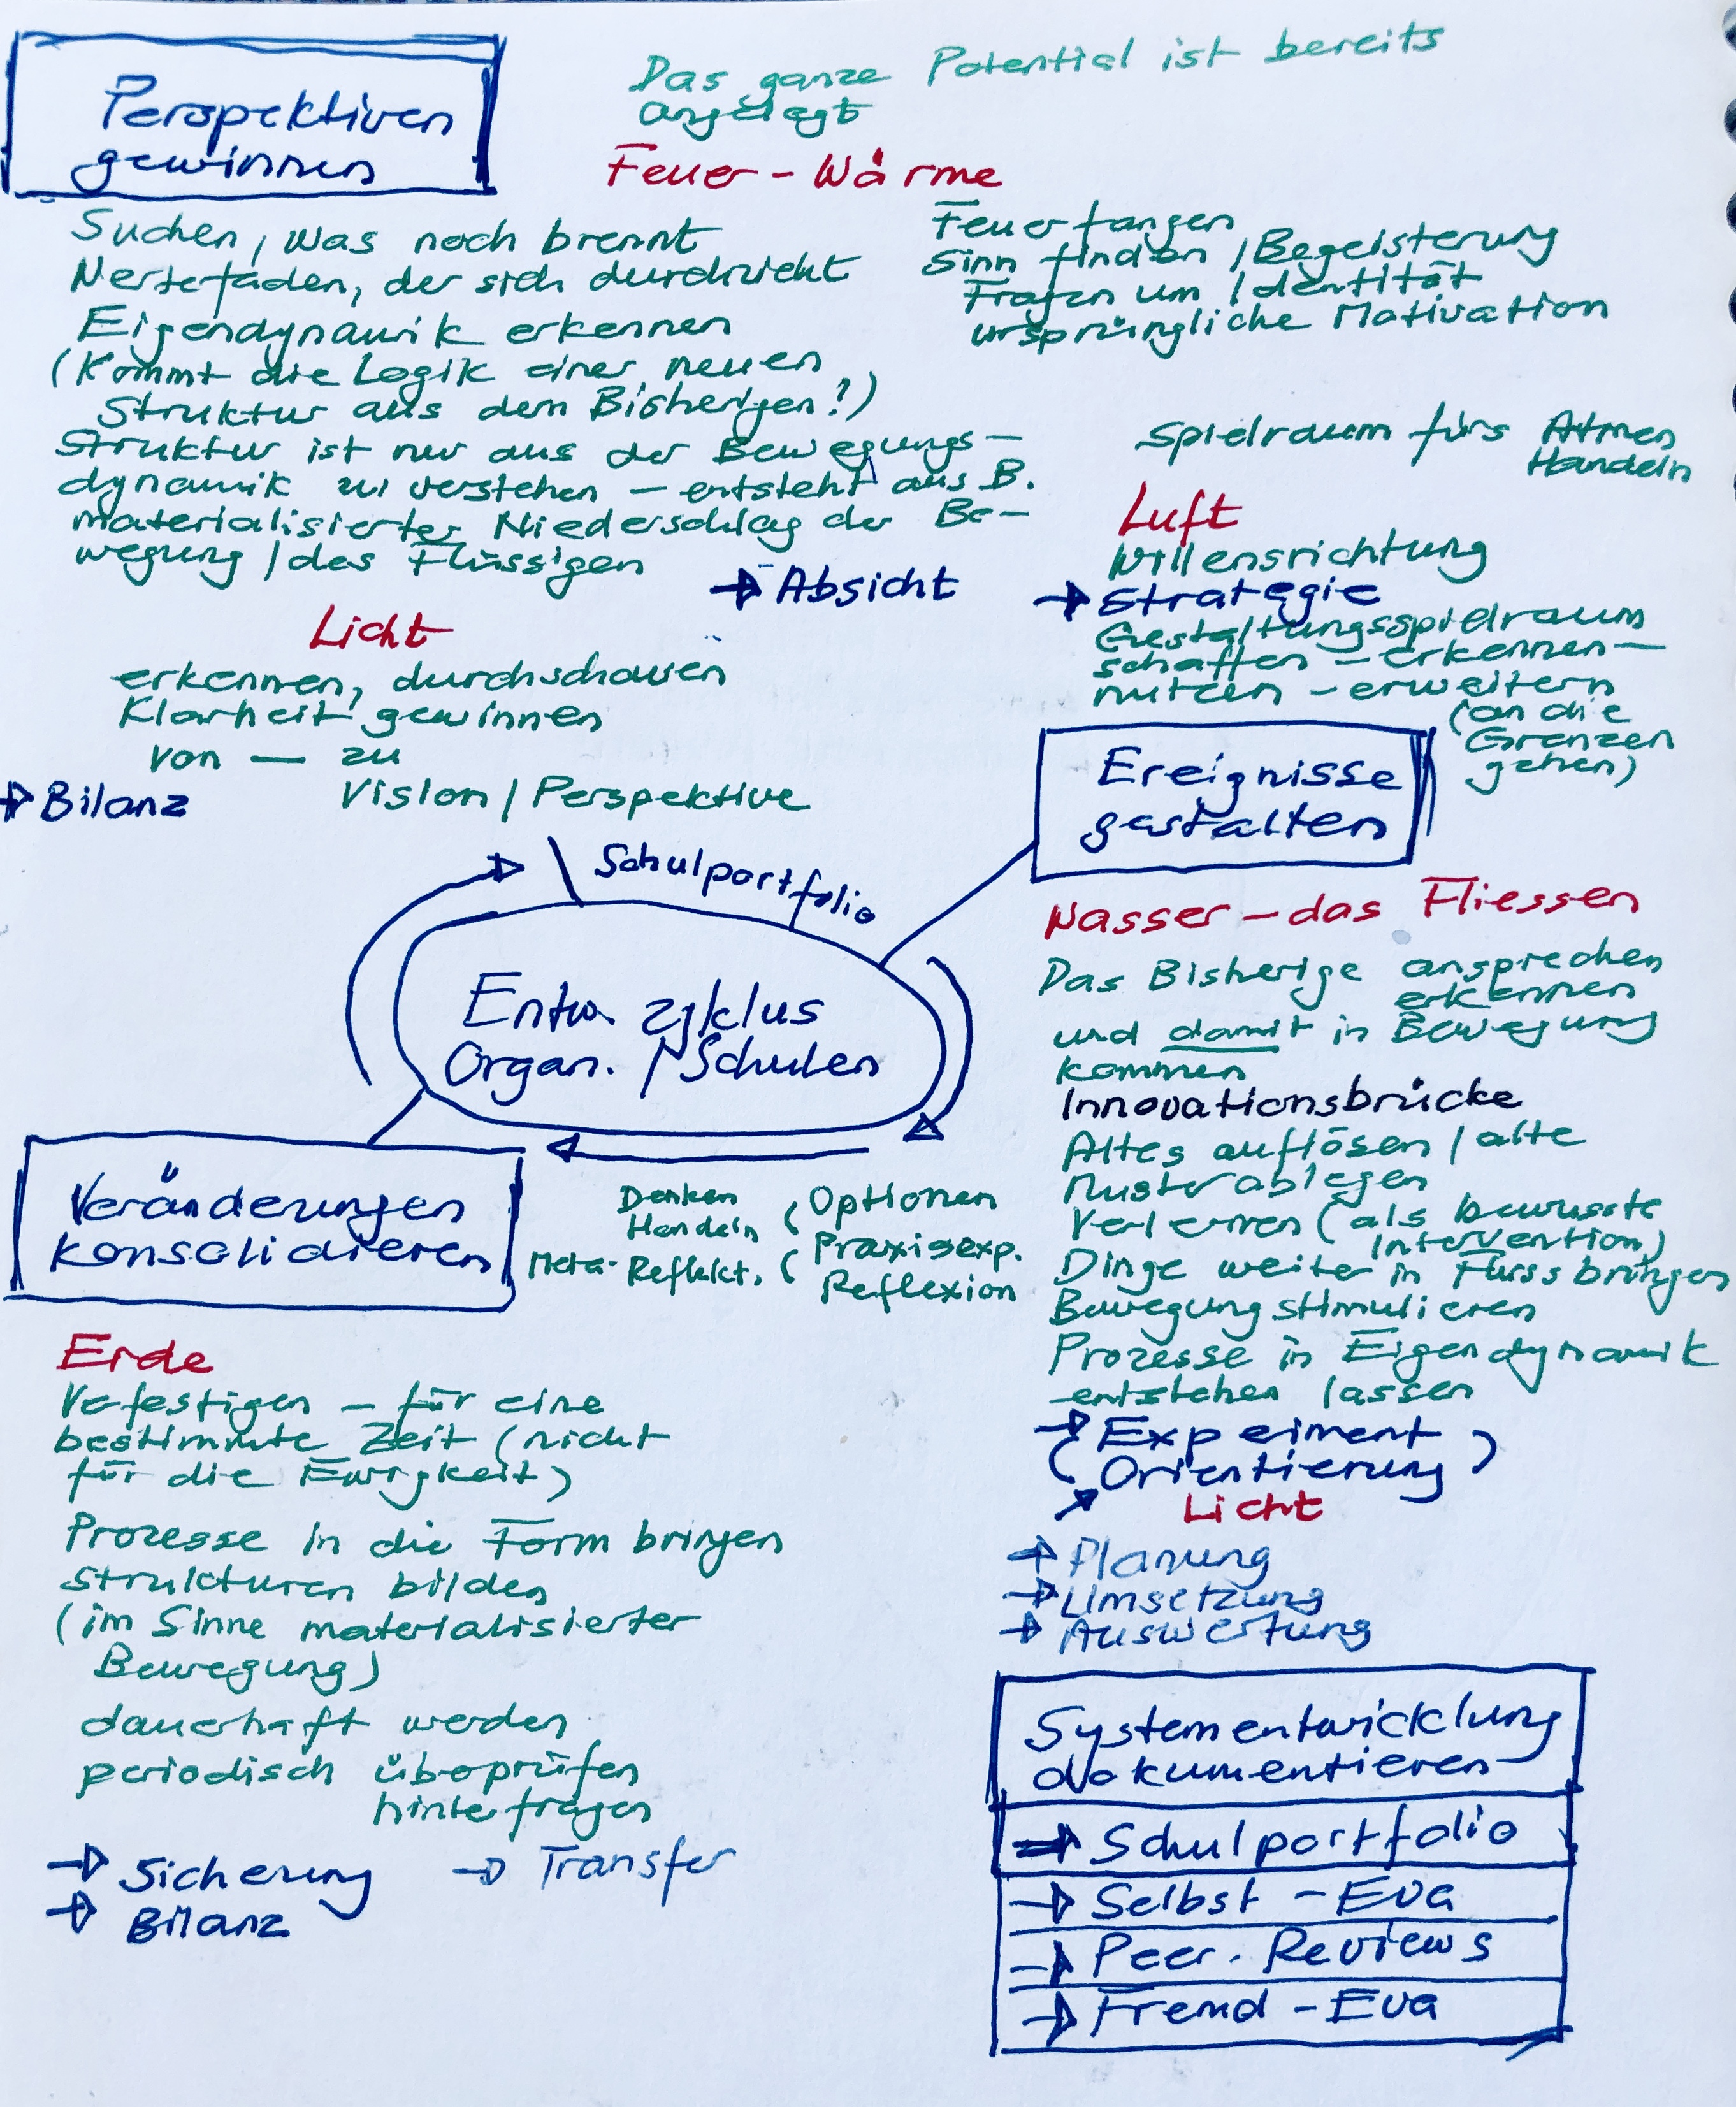 Perspektiven
gewinnen
Das ganze Potential ist bereits
angelegt
Feuer - Wärme
Suchen, was noch brennt
Wertefaden, der sich durchzieht
Eigendynamik erkennen
(Kommt die Logik einer neuen
Struktur aus dem Bisherigen?)
Struktur ist nur aus der Bewegungs-
dynamik zu verstehen - entsteht aus B.
materialisierter Niederschlag der Be-
wegung / des Flüssigen
→ Absicht
Feuer fangen
Sinn finden / Begeisterung
Fragen um Identität
ursprüngliche Motivation
Spielraum fürs Atmen
Handeln
Luft
Willensrichtung
→ Strategie
Gestaltungsspielraum
schaffen - erkennen -
nutzen - erweitern
(an die
Grenzen
gehen)
Licht
erkennen, durchschauen
Klarheit gewinnen
von — zu
→ Bilanz
Vision / Perspektive
Ereignisse
gestalten
Schulportfolio
Entw. zyklus
Organ. / Schulen
Wasser - das Fliessen
Das Bisherige ansprechen
erkennen
und damit in Bewegung
kommen
Innovationsbrücke
Altes auflösen / alte
Muster ablegen
Verlernen (als bewusste
Intervention)
Dinge weiter in Fluss bringen
Bewegung stimulieren
Prozesse in Eigendynamik
entstehen lassen
→ Experiment
( Orientierung )
Licht
→ Planung
→ Umsetzung
→ Auswertung
Veränderungen
konsolidieren
Denken ( Optionen
Handeln ( Praxisexp.
Meta-Reflekt. ( Reflexion
Erde
Vefestigen - für eine
bestimmte Zeit (nicht
für die Ewigkeit)
Prozesse in die Form bringen
Strukturen bilden
(im Sinne materialisierter
Bewegung)
dauerhaft werden
periodisch überprüfen
hinterfragen
→ Sicherung → Transfer
→ Bilanz
Systementwicklung
dokumentieren
→ Schulportfolio
→ Selbst - Eva
→ Peer. Reviews
→ Fremd - Eva